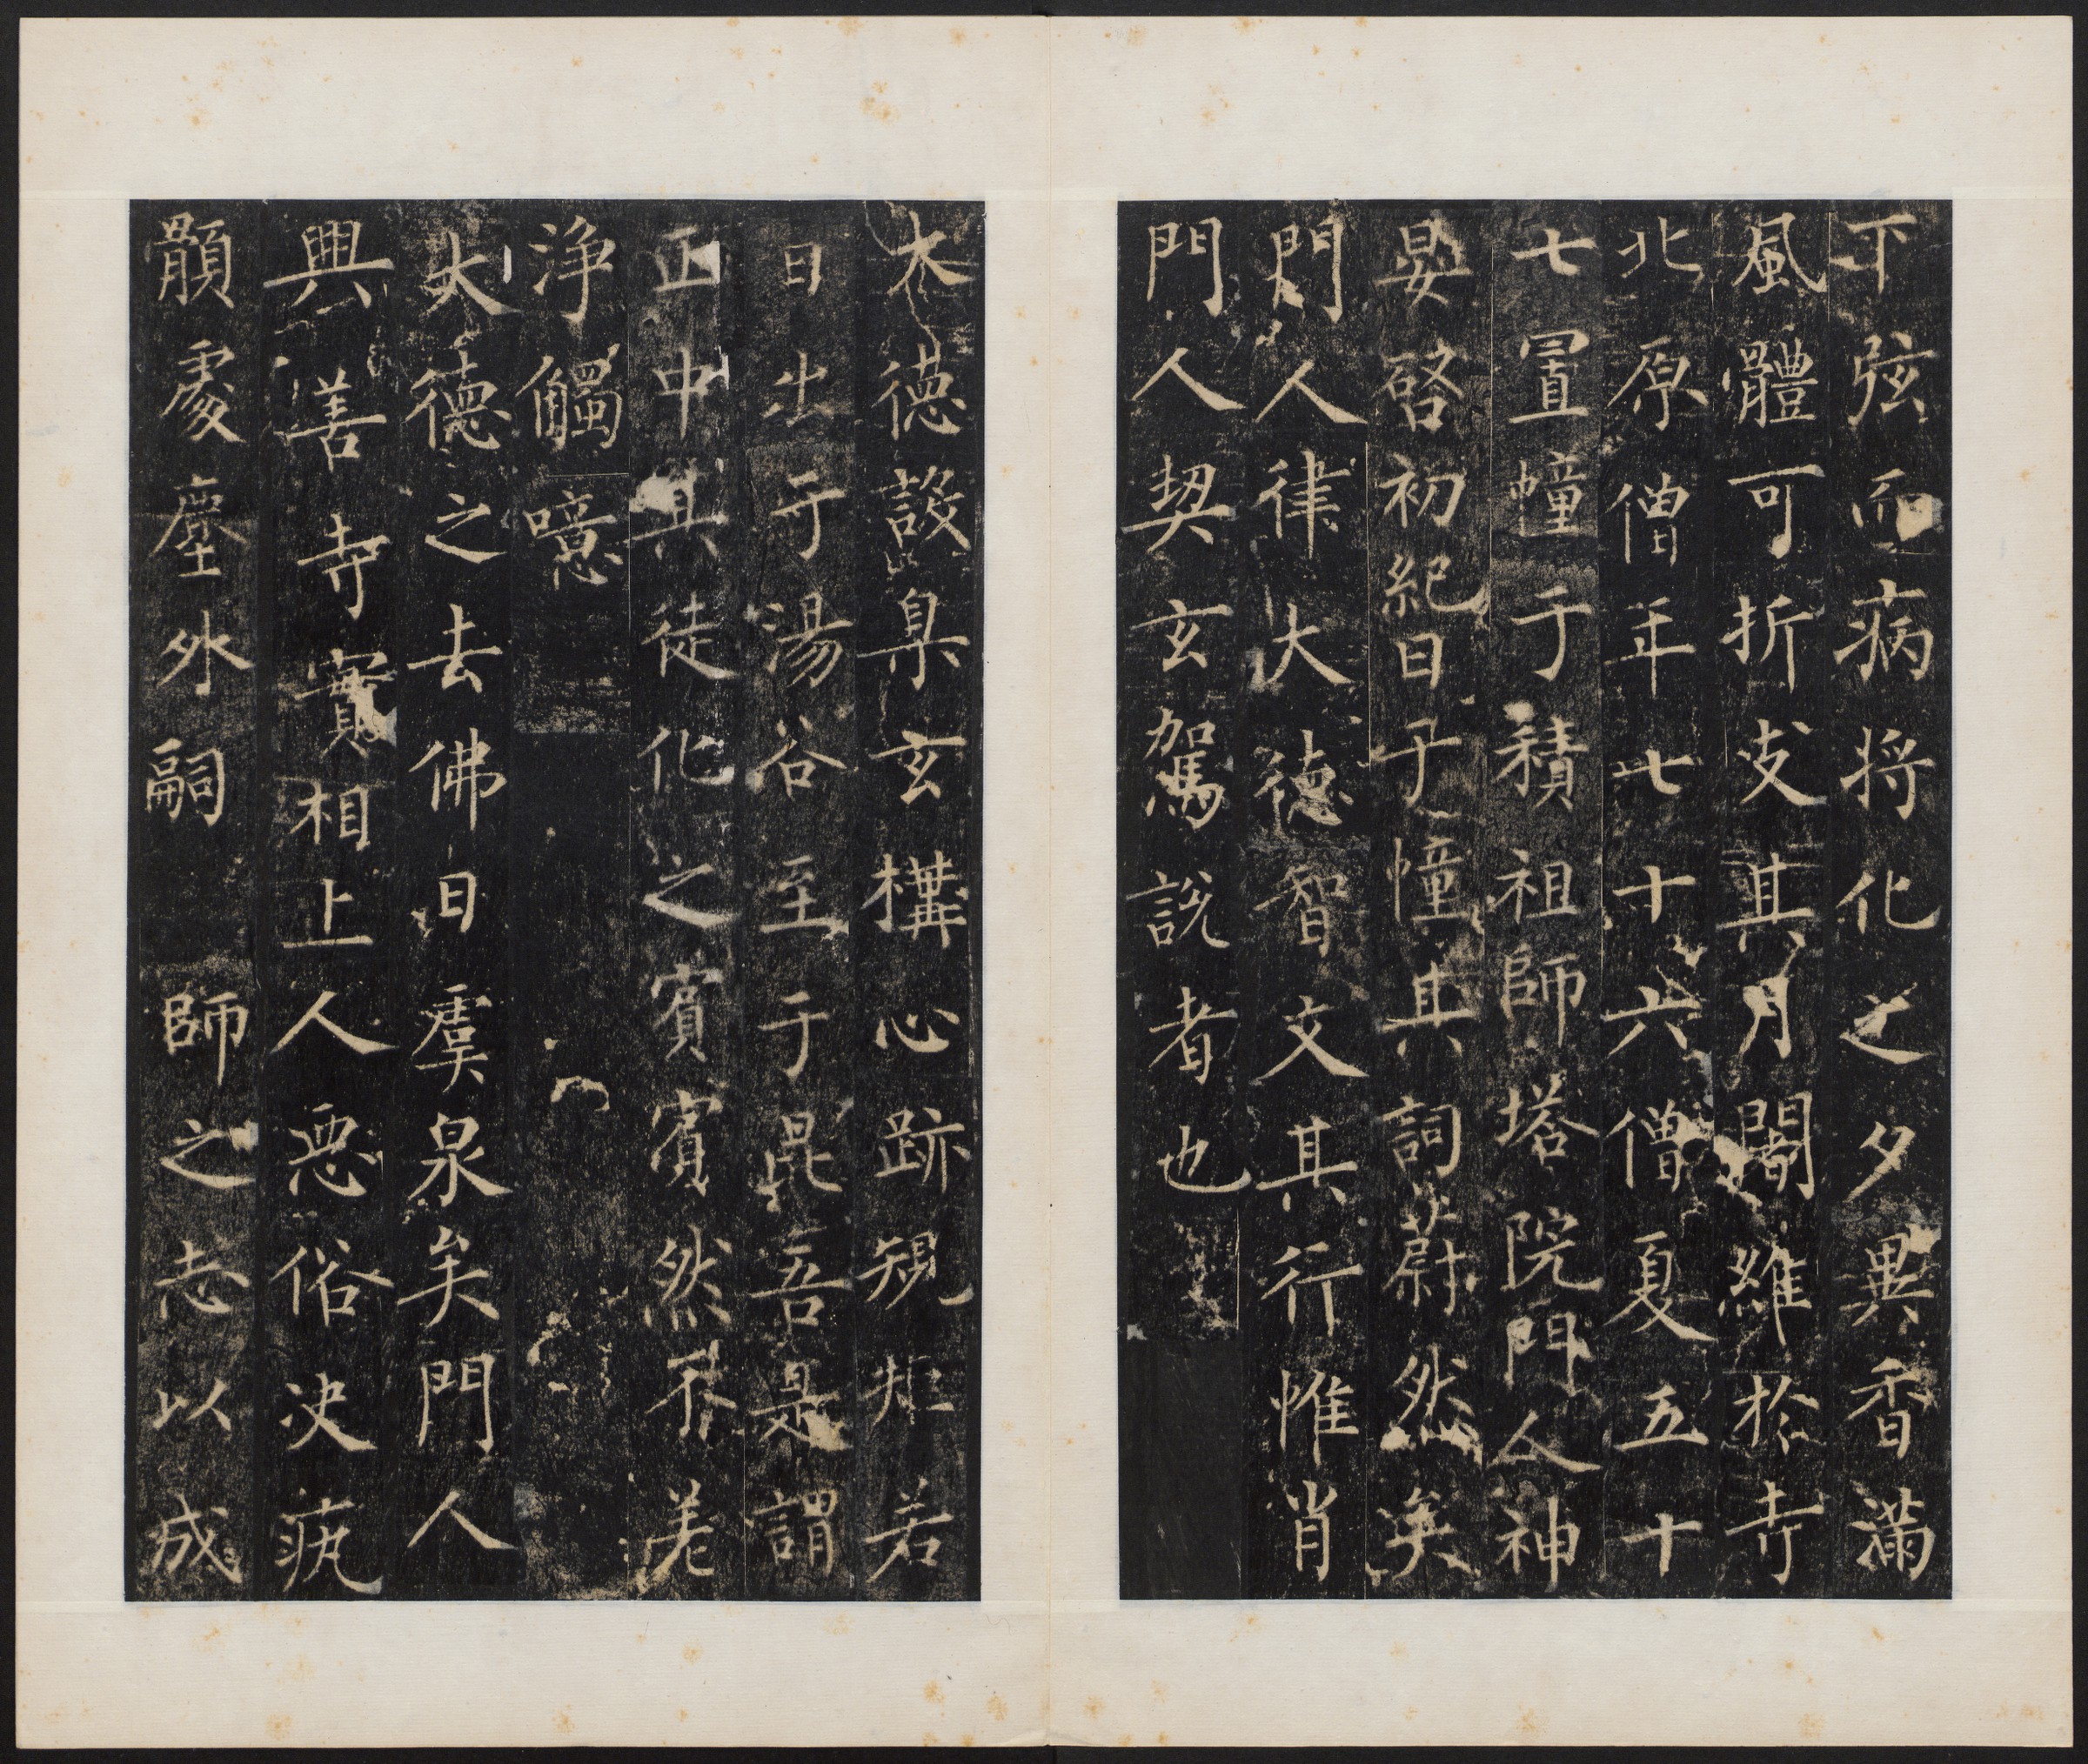 下弦而病將化之夕異香滿
風體可折支其月闍維於寺
北原僧年七十六僧夏五十
七置幢于積祖師塔院門人神
晏啓初紀日子幢其詞蔚然矣
門人律大德智文其行惟肖
門人契玄駕說者也
大德設臬玄構心跡規矩若
日出于湯谷至于昆吾是謂
正中其徒化之賓賓然不差
淨觸噫
大德之去佛日虞泉矣門人
興善寺實相上人惡俗決疣
顥處塵外嗣師之志以成